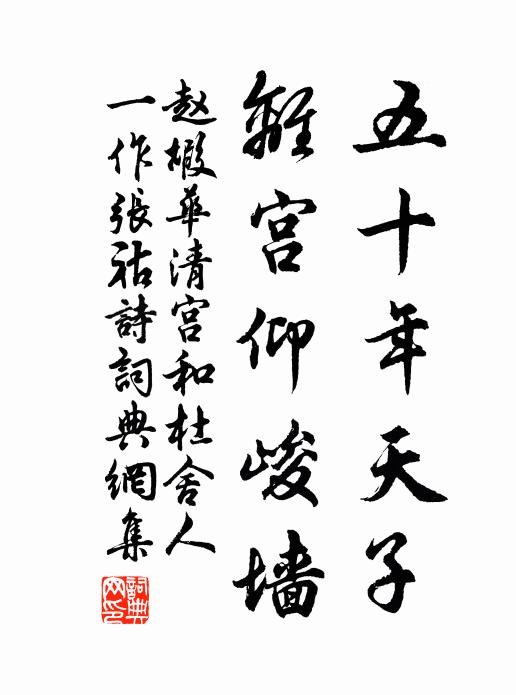 五十年天子
離宮仰峻墙
赵嘏華清宮和杜舍人
一作張祜詩詞典網集
詞典网印